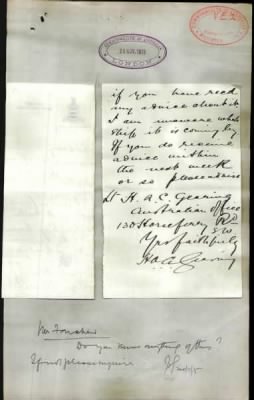 LONDON
if you have recd
any advice about it
I am unaware what
ship it is coming by
If you do receive
advice within
the next week
or so please advise
Lt H. A. C. Gearing
Australian Office
130 Horseferry Rd
S W
Yrs faithfully
H A C Gearing
Do you know anything of this?
If not please inquire